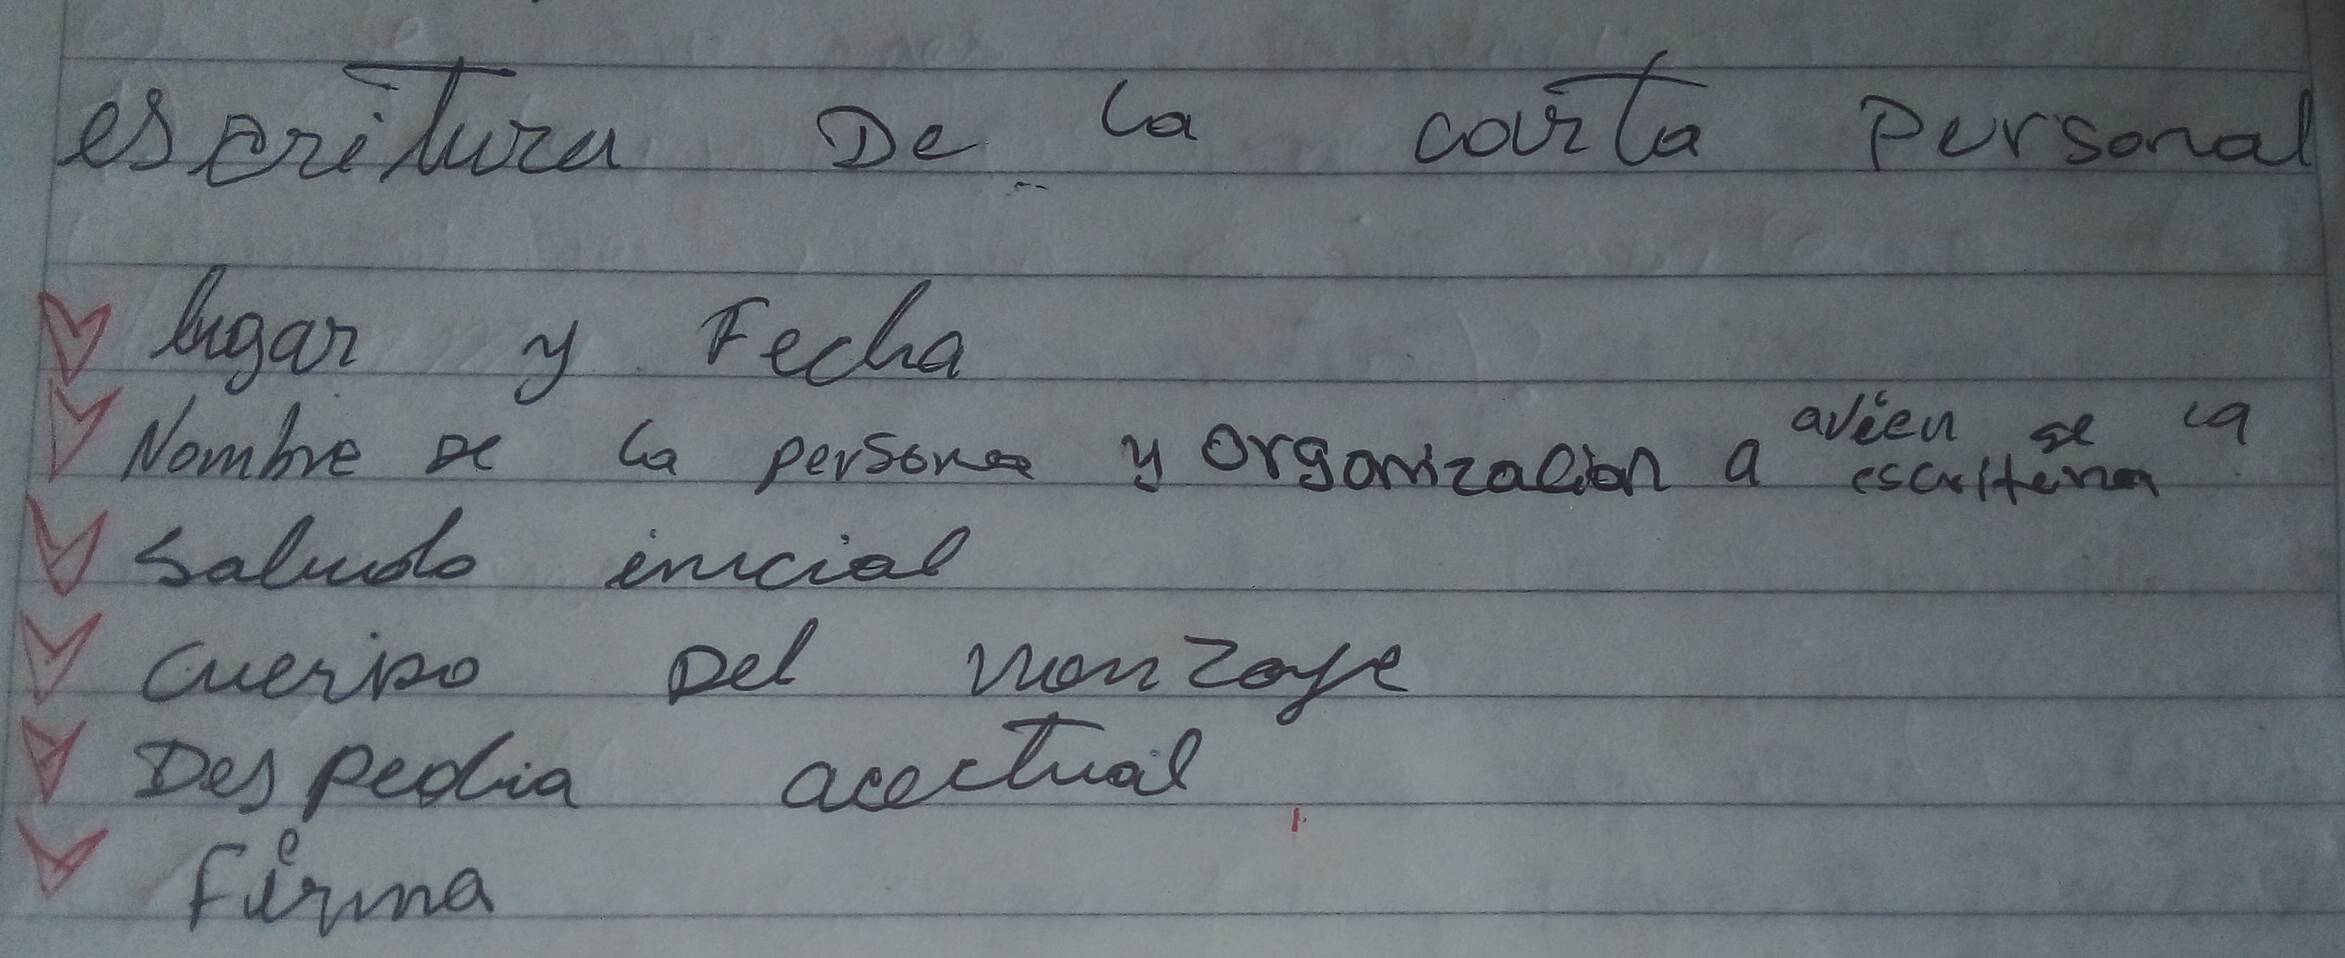 escritura De la carta Personal
lugar y Fecha
Nombre de la persona y organización a avien se la
saludo inicial
cuerpo Del
Despedia acectual
firma